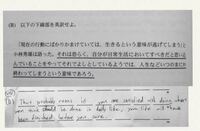 (B) 以下の下線部を英訳せよ。
「現在の行動にばかりかまけていては、生きるという意味が逃げてしまう」と
小林秀雄は語った。それは恐らく、自分が日常生活においてすべきだと思い込
んでいることをやってそれでよしとしているようでは、人生などいつのまにか
終わってしまうという意味であろう。
(B)
That probably means if you are satisfied with doing what
you should be done in daily life, your life will have
been finished before you